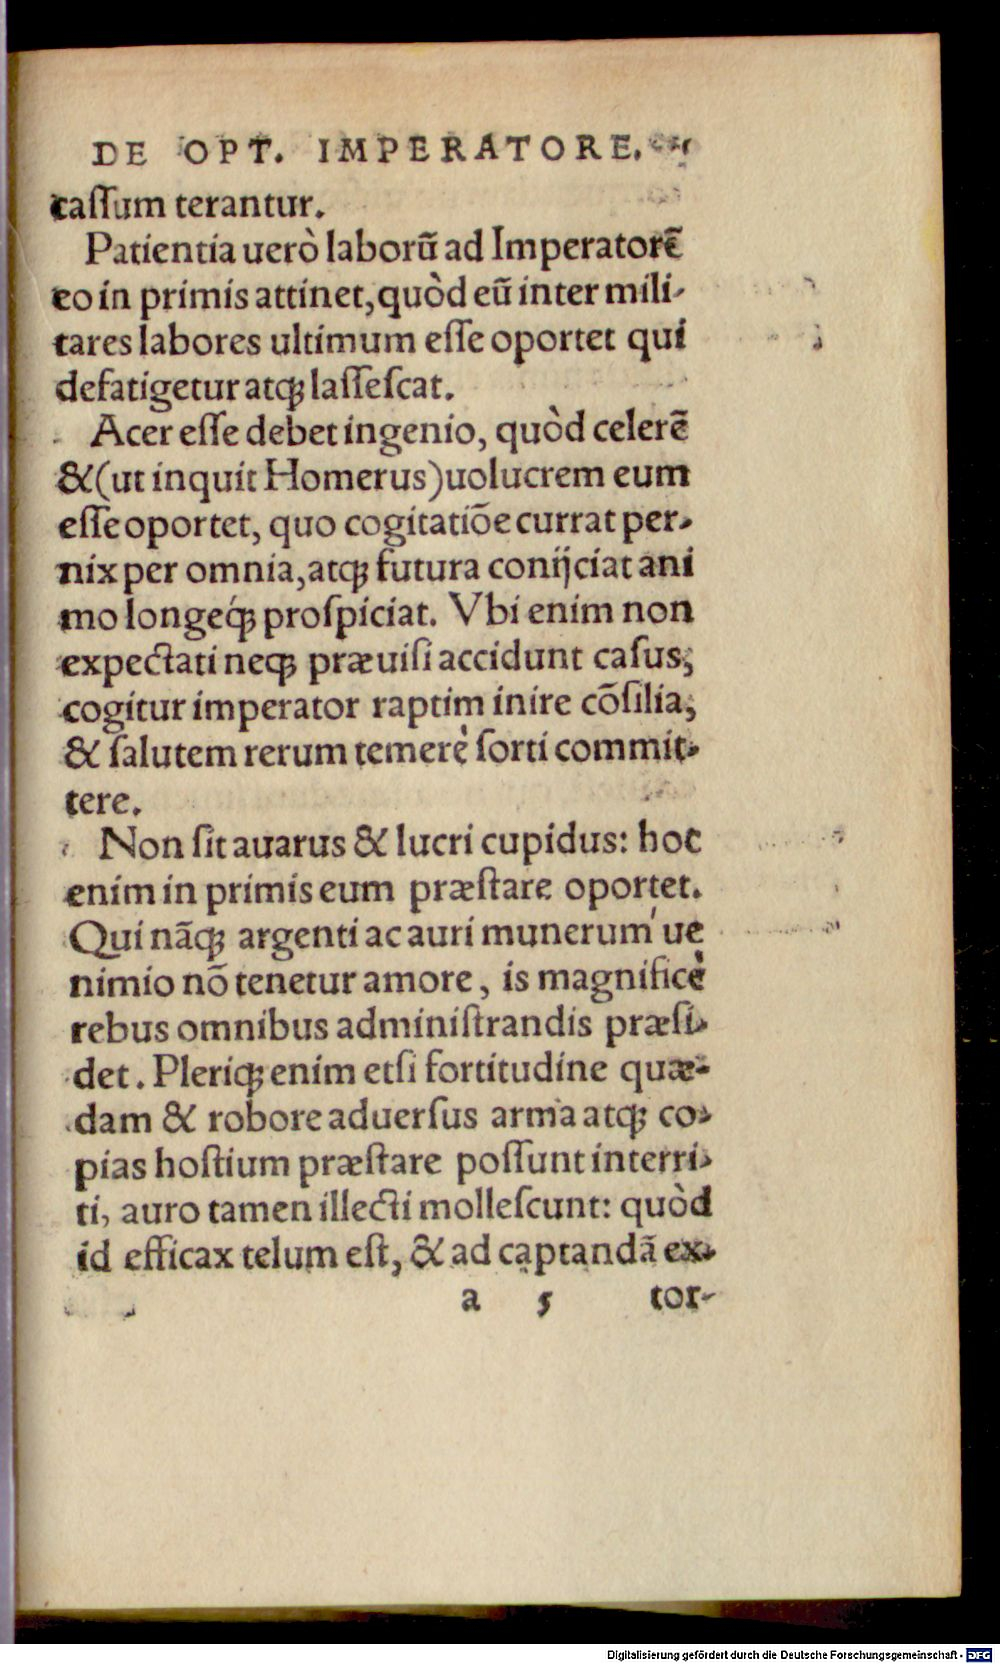 DE OPT. IMPERATORE.
caſſum terantur.
Patientia uerò laborū ad Imperatorē
eo in primis attinet, quòd eū inter mili-
tares labores ultimum eſſe oportet qui
defatigetur atq; laſſeſcat.
Acer eſſe debet ingenio, quòd celerē
&(ut inquit Homerus)uolucrem eum
eſſe oportet, quo cogitatiōe currat per-
nix per omnia, atq; futura conijciat ani
mo longeq́; proſpiciat. Vbi enim non
expectati neq; præuiſi accidunt caſus,
cogitur imperator raptim inire cōſilia,
& ſalutem rerum temerè ſorti commit-
tere.
Non ſit auarus & lucri cupidus: hoc
enim in primis eum præſtare oportet.
Qui nāq; argenti ac auri muneruḿ ue
nimio nō tenetur amore, is magnificè
rebus omnibus adminiſtrandis præſi-
det. Pleriq; enim etſi fortitudine quæ-
dam & robore aduerſus arma atq; co-
pias hoſtium præſtare poſſunt interri-
ti, auro tamen illecti molleſcunt: quòd
id efficax telum eſt, & ad captandā ex-
a 5 tor-
Digitalisierung gefördert durch die Deutsche Forschungsgemeinschaft - DFG